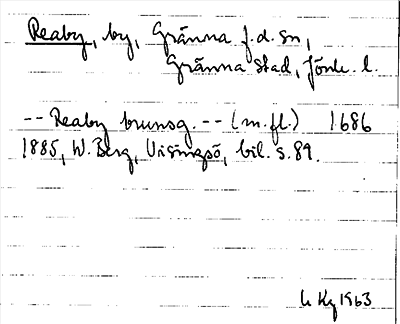 Reaby, by, Gränna f.d. sn,
Gränna stad, Jönk. l.
-- Reaby brunsg. -- (m.fl.) 1686
1885, W. Berg, Visingsö, bil. s. 89.
Ky 1963